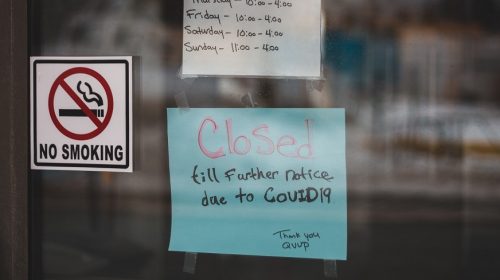 Thursday - 10:00 - 4:00
Friday - 10:00 - 4:00
Saturday - 10:00 - 4:00
Sunday - 11:00 - 4:00
NO SMOKING
Closed
till Further notice
due to COVID19
Thank you
QVVP